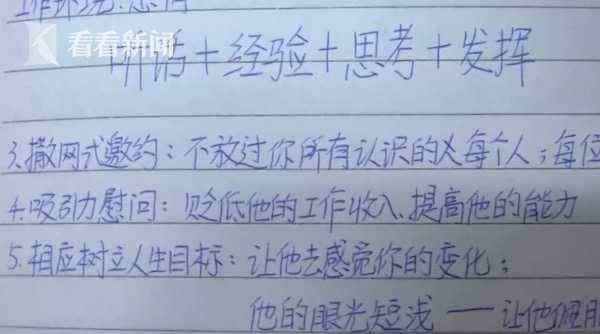 工作环境:
看看新闻
听话+经验+思考+发挥
3.撒网式邀约:不放过你所有认识的每个人;每位
4.吸引力慰问:贬低他的工作收入、提高他的能力
5.相应树立人生目标:让他去感觉你的变化;
他的眼光短浅——让他佩服